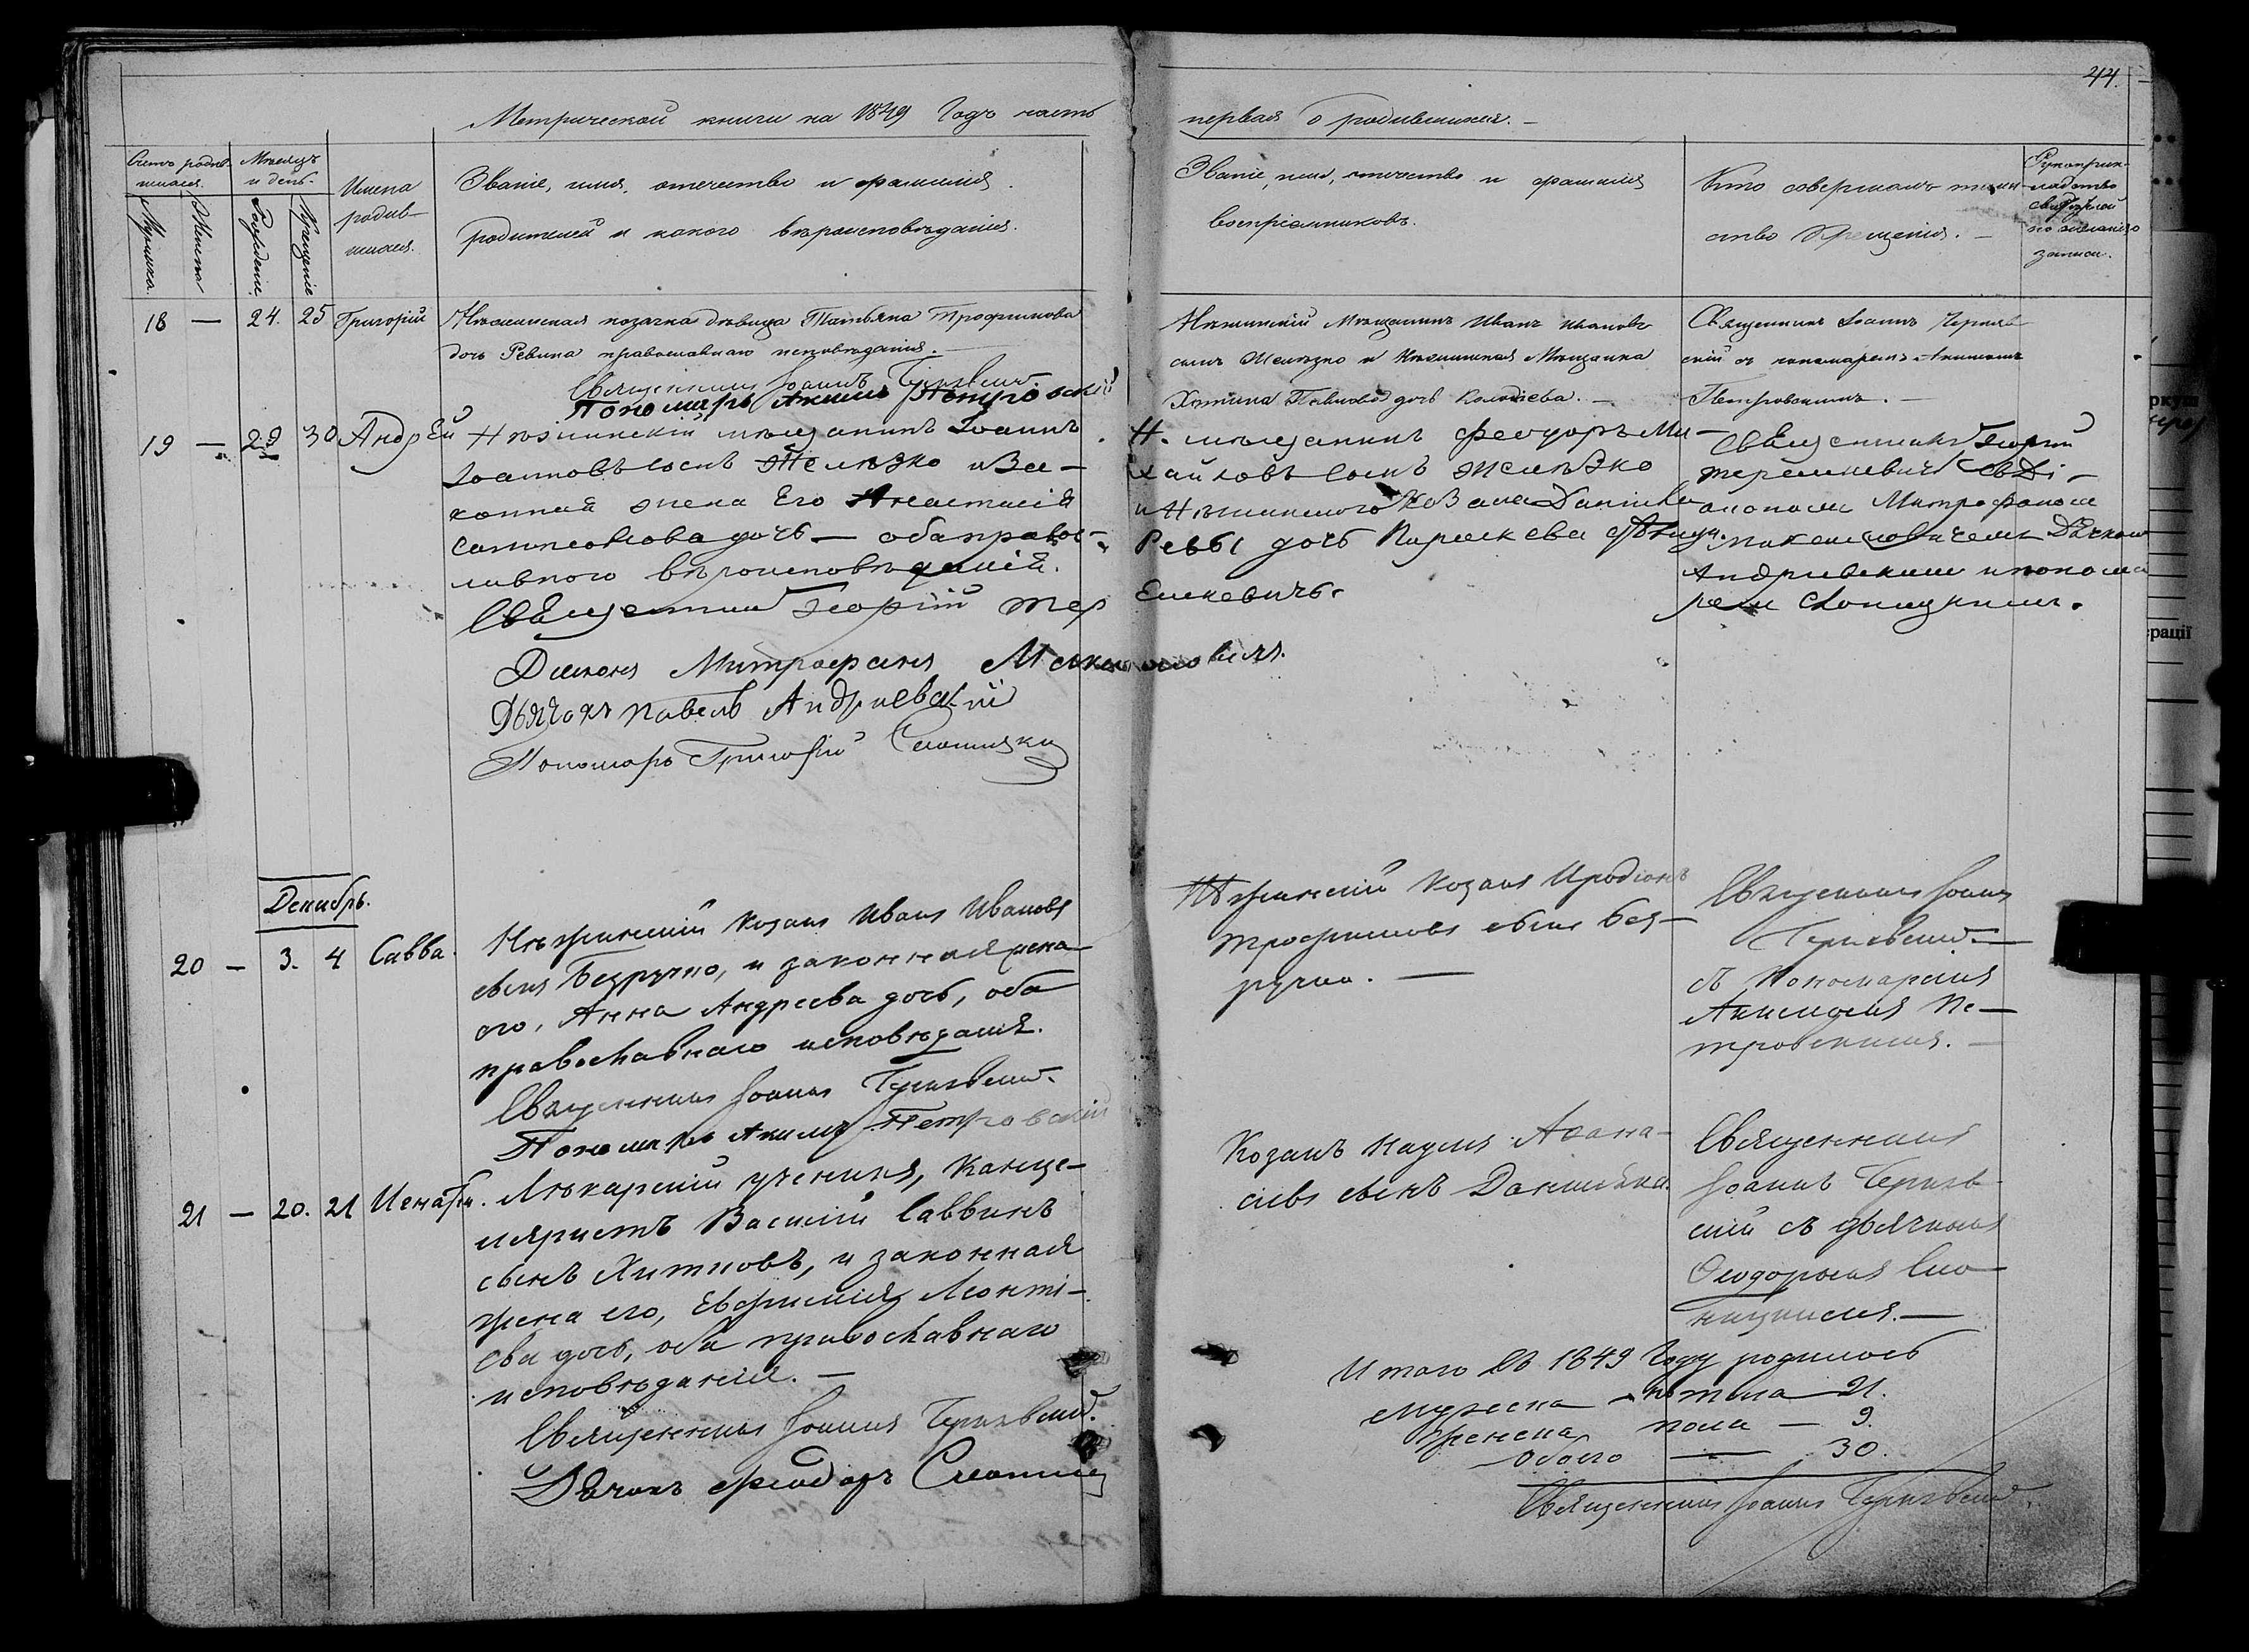 44.
Метрической книги на 1849 Годъ часть
первая о родившихся. —
Счетъ родив-
шихся.
Мѣсяцъ
и день.
Мужеска
Женска
Рожденіе
Крещеніе
Имена
родив-
шихся.
Званіе, имя, отечество и фамилія
родителей и какого вѣроисповѣданія.
Званіе, имя, отечество и фамилія
воспріемниковъ.
Кто совершалъ таин-
ство Крещенія. —
Рукоприк-
ладство
свидѣтелей
по желанію
записи.
18 — 24. 25 Григорій
Нѣжинская козачка дѣвица Татьяна Трофимова
дочь Ревина православнаго исповѣданія. —
Священникъ Іоаннъ
Пономарь Акимъ Петровскій
Нѣжинскій Мѣщанинъ Иванъ Ивановъ
сынъ Желѣзко и Нѣжинская Мѣщанка
Павлова дочь
Священникъ Іоаннъ Черняв-
скій съ пономаремъ Акимомъ
Петровскимъ. —
19 — 29 30 Андрей
Нѣжинскій мѣщанинъ Іоаннъ
Іоанновъ сынъ Желѣзко и За-
конная жена Его Анастасія
дочь — оба правос-
лавного вѣроисповѣданія.
Священникъ Георгій Тер
Діаконъ Митрофанъ
Дьячокъ Павелъ Андріевскій
Пономарь Григорій
Н. мѣщанинъ Феодоръ Ми-
хайловъ сынъ Желѣзко
и Нѣжинского Козака Даніила
Ревы дочь Параскева дѣвица.
Емкевичъ.
Священникъ Георгій
съ Ді-
акономъ Митрофаномъ
Дьячком
Андріевским и понома
рем
Декабрь.
20 — 3. 4 Савва.
Нѣжинскій козакъ Иванъ Ивановъ
сынъ Безручко, и законная жена
его, Анна Андреева дочь, оба
православнаго исповѣданія.
Священникъ Іоаннъ Чернявскій.
Пономарь Акимъ Петровскій
Нѣжинскій козакъ Иродіонъ
Трофимовъ сынъ Без-
ручко. —
Священникъ Іоаннъ
Чернявскій —
съ Пономаремъ
Акимомъ Пе-
тровскимъ. —
21 — 20. 21
Лѣкарскій ученикъ, Канце-
ляристъ Василій Саввинъ
сынъ Хитновъ, и законная
жена его, Евфимія Леонті-
ева дочь, оба православнаго
исповѣданія. —
Священникъ Іоаннъ Чернявскій.
Дячокъ Феодоръ
Козакъ Наумъ Аѳана-
сіевъ сынъ
Священникъ
Іоаннъ Черняв-
скій съ дьячкомъ
Ѳеодоромъ Сло-
ницкимъ. —
Итого въ 1849 Году родилось
мужеска пола — 21.
женска пола — 9.
Обоего — 30.
Священникъ Іоаннъ Чернявскій.